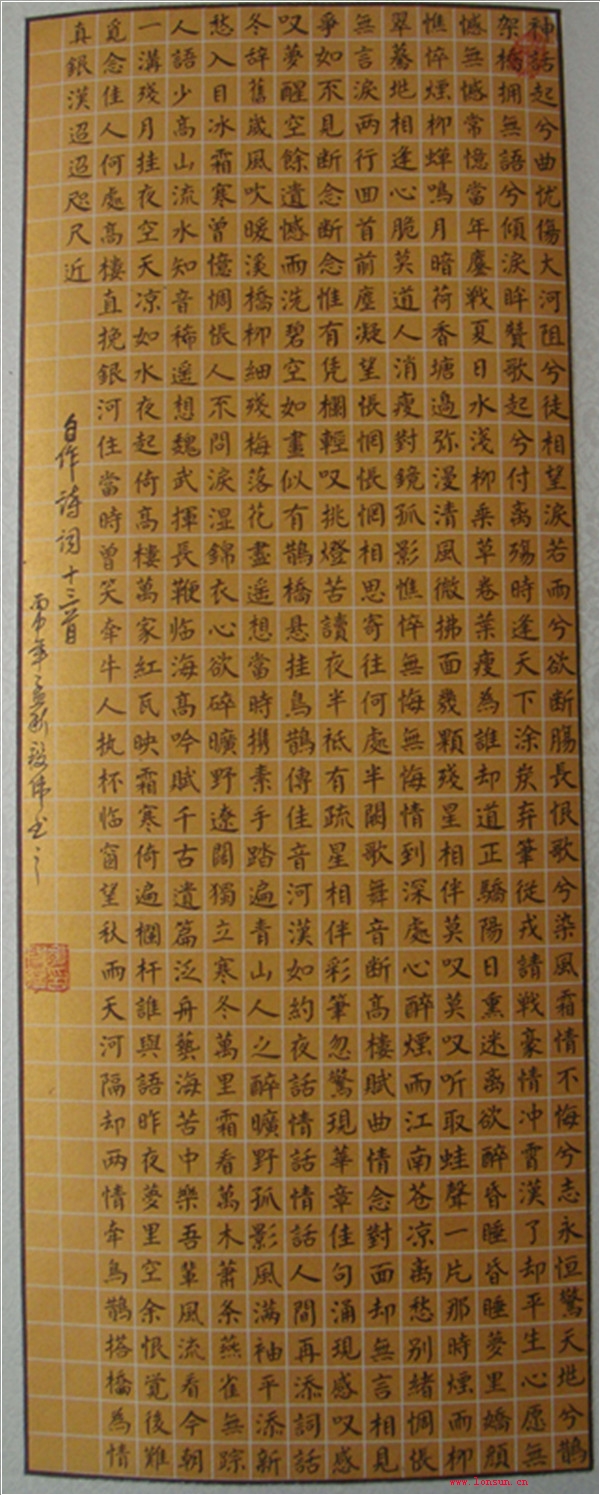 神話起兮曲忧傷大河阻兮徒相望淚若雨兮欲断腸長恨歌兮染風霜情不悔兮志永恒驚天地兮鵲
架橋拥無語兮傾淚眸贊歌起兮付离殤時逢天下涂炭弃筆從戎請戰豪情冲霄漢了却平生心愿無
憾無憾常憶當年鏖戰夏日水淺柳垂草卷葉瘦為誰却道正驕陽日熏迷离欲醉昏睡昏睡夢里嬌顔
憔悴煙柳蟬鳴月暗荷香塘邊弥漫清風微拂面幾顆殘星相伴莫叹莫叹听取蛙聲一片那時煙雨柳
翠驀地相逢心脆莫道人消瘦對鏡孤影憔悴無悔無悔情到深處心醉煙雨江南苍凉离愁别緒惆悵
無言淚两行回首前塵凝望悵惘悵惘相思寄往何處半闋歌舞音断高樓賦曲情念對面却無言相見
爭如不見断念断念惟有凭欄輕叹挑燈苦讀夜半衹有疏星相伴彩筆忽驚現華章佳句涌現感叹感
叹夢醒空餘遺憾雨洗碧空如畫似有鵲橋悬挂鳥鵲傳佳音河漢如約夜話情話情話人間再添詞話
冬辞舊歲風吹暖溪橋柳細殘梅落花盡遥想當時携素手踏遍青山人之醉曠野孤影風满袖平添新
愁入目冰霜寒曾憶惆悵人不問淚湿錦衣心欲碎曠野遼闊獨立寒冬萬里霜看萬木蕭条燕雀無踪
人語少高山流水知音稀遥想魏武揮長鞭临海高吟賦千古遺篇泛舟藝海苦中樂吾輩風流看今朝
一溝殘月挂夜空天凉如水夜起倚高樓萬家紅瓦映霜寒倚遍欄杆誰與語昨夜夢里空余恨覺後難
覓念佳人何處高樓直挽銀河住當時曾笑牵牛人执杯临窗望秋雨天河隔却两情牵鳥鵲搭橋為情
真銀漢迢迢咫尺近
自作詩詞十三首
丙申年
www.lonsun.cn